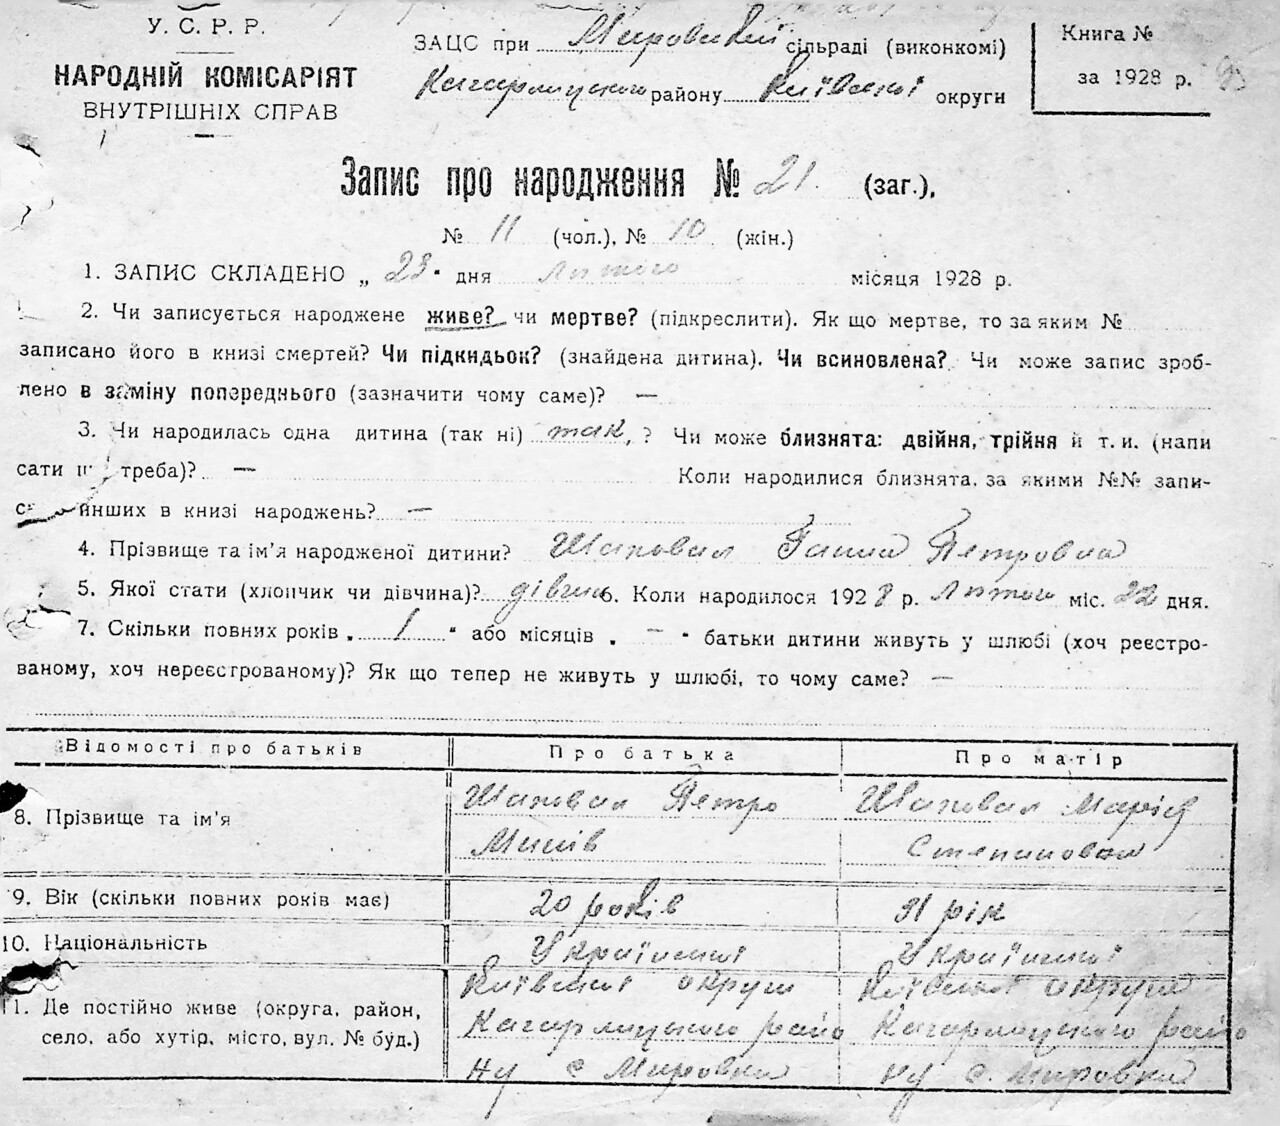 У. С. Р. Р.
НАРОДНІЙ КОМІСАРІЯТ
ВНУТРІШНІХ СПРАВ
ЗАЦС при Мировській сільраді (виконкомі)
Кагарлицького району Київської округи
Книга №
за 1928 р.
Запис про народження № 21. (заг.),
№ 11 (чол.), № 10 (жін.)
1. ЗАПИС СКЛАДЕНО „ 23 " дня лютого місяця 1928 р.
2. Чи записується народжене живе? чи мертве? (підкреслити). Як що мертве, то за яким №
записано його в книзі смертей? Чи підкидьок? (знайдена дитина). Чи всиновлена? Чи може запис зроб-
лено в заміну попереднього (зазначити чому саме)? —
3. Чи народилась одна дитина (так ні) так, ? Чи може близнята: двійня, трійня й т. и. (напи
сати треба)? — Коли народилися близнята, за якими №№ запи-
инших в книзі народжень? —
4. Прізвище та ім'я народженої дитини? Шаповал Ганна Петровна
5. Якої стати (хлопчик чи дівчина)? дівчина 6. Коли народилося 1928 р. лютого міс. 22 дня.
7. Скільки повних років „ 1 " або місяців „ — " батьки дитини живуть у шлюбі (хоч реєстро-
ваному, хоч нереєстрованому)? Як що тепер не живуть у шлюбі, то чому саме? —
Відомості про батьків Про батька Про матір
8. Прізвище та ім'я Шаповал Петро Шаповал Марія
Степановна
9. Вік (скільки повних років має) 20 років 21 рік
10. Національність Української Української
11. Де постійно живе (округа, район, Київської округи Київської округи
село, або хутір, місто, вул. № буд.) Кагарлицького райо Кагарлицького райо
ну с Мировки ну с. Мировки